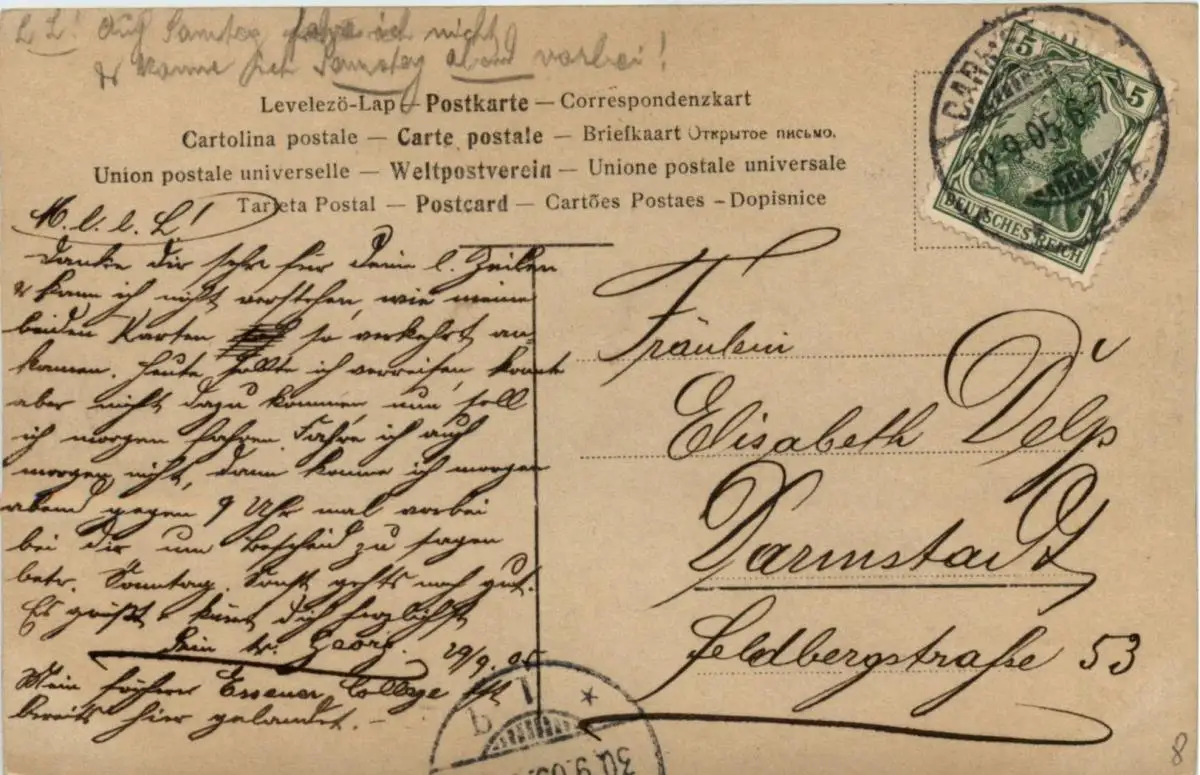 L L! Auf Samstag fahre ich nicht
& komme ich Samstag abend vorbei!
Levelezö-Lap – Postkarte – Correspondenzkart
Cartolina postale – Carte postale – Briefkaart Открытое письмо.
Union postale universelle – Weltpostverein – Unione postale universale
Tarjeta Postal – Postcard – Cartões Postaes – Dopisnice
M. l. l. L!
Danke dir sehr für deine l. Zeilen
& kann ich nicht verstehen, wie meine
beiden Karten so verkehrt an-
kamen. Heute sollte ich verreisen, konnte
aber nicht dazu kommen nun soll
ich morgen fahren. Fahre ich auch
morgen nicht, dann komme ich morgen
abend gegen 9 Uhr mal vorbei
bei dir um Bescheid zu sagen
betr. Sonntag. Sonst gehts noch gut.
Es grüßt & küsst dich herzlichst
Dein tr. Georg. 29/9.05
Mein früherer Essener College ist
bereits hier gelandet. –
Fräulein
Elisabeth Delp
Darmstadt
Feldbergstraße 53
5 5
DEUTSCHES REICH
9.05. 6-7
30.9.05
8